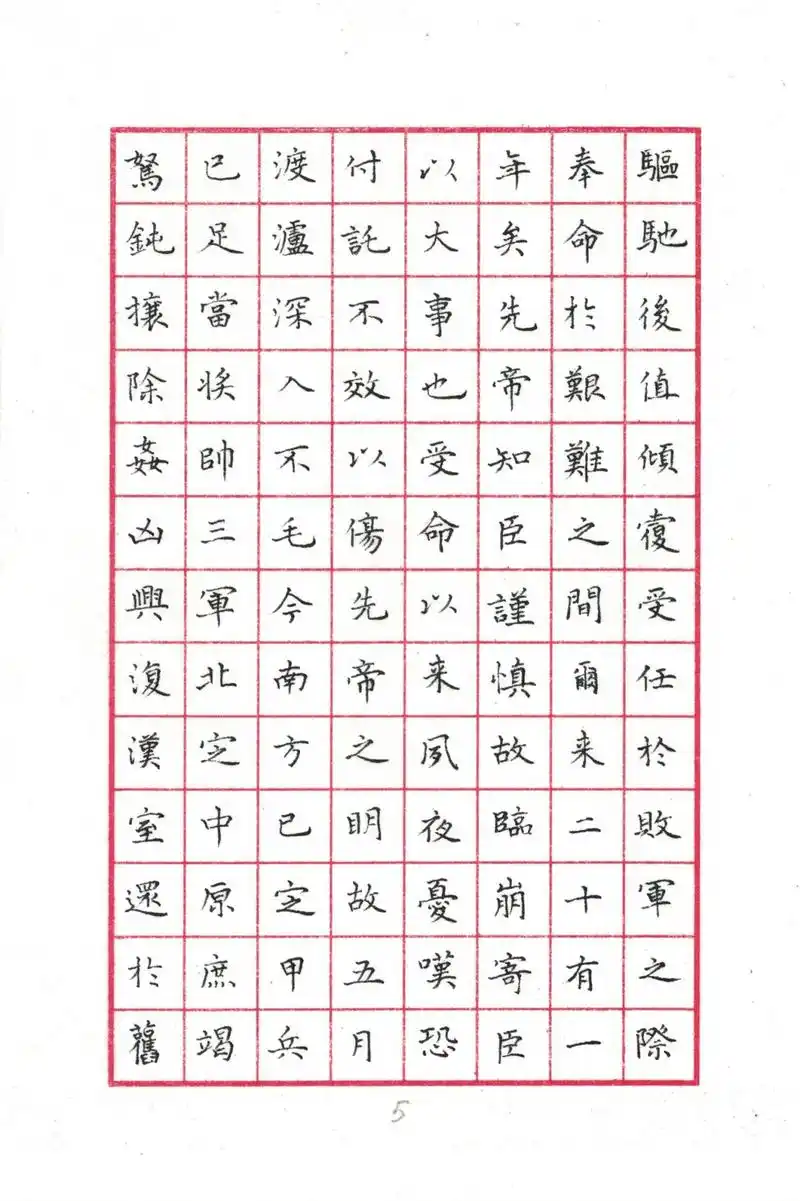 驅馳後值傾覆受任於敗軍之際
奉命於艱難之間爾来二十有一
年矣先帝知臣謹慎故臨崩寄臣
以大事也受命以来夙夜憂嘆恐
付託不效以傷先帝之明故五月
渡瀘深入不毛今南方已定甲兵
已足當將帥三軍北定中原庶竭
駑鈍攘除姦凶興復漢室還於舊
5